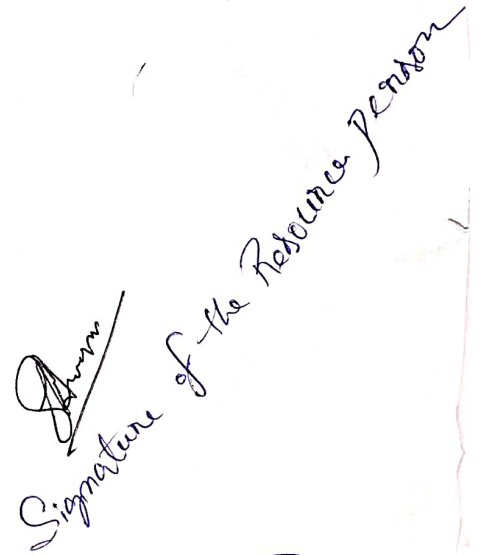 Signature of the Resource person